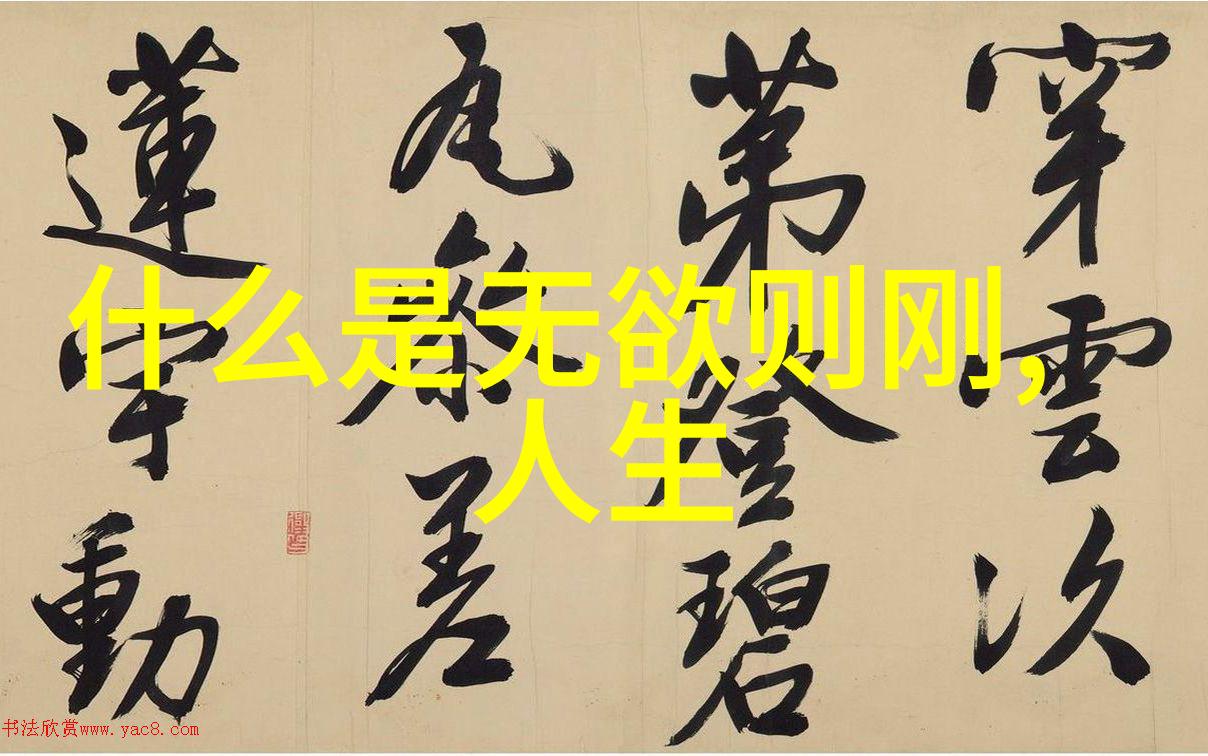 什么是无欲则刚,
人生
穿雲次
第登碧
瓦參差
蓮宇動
书法欣赏www.yac8.com